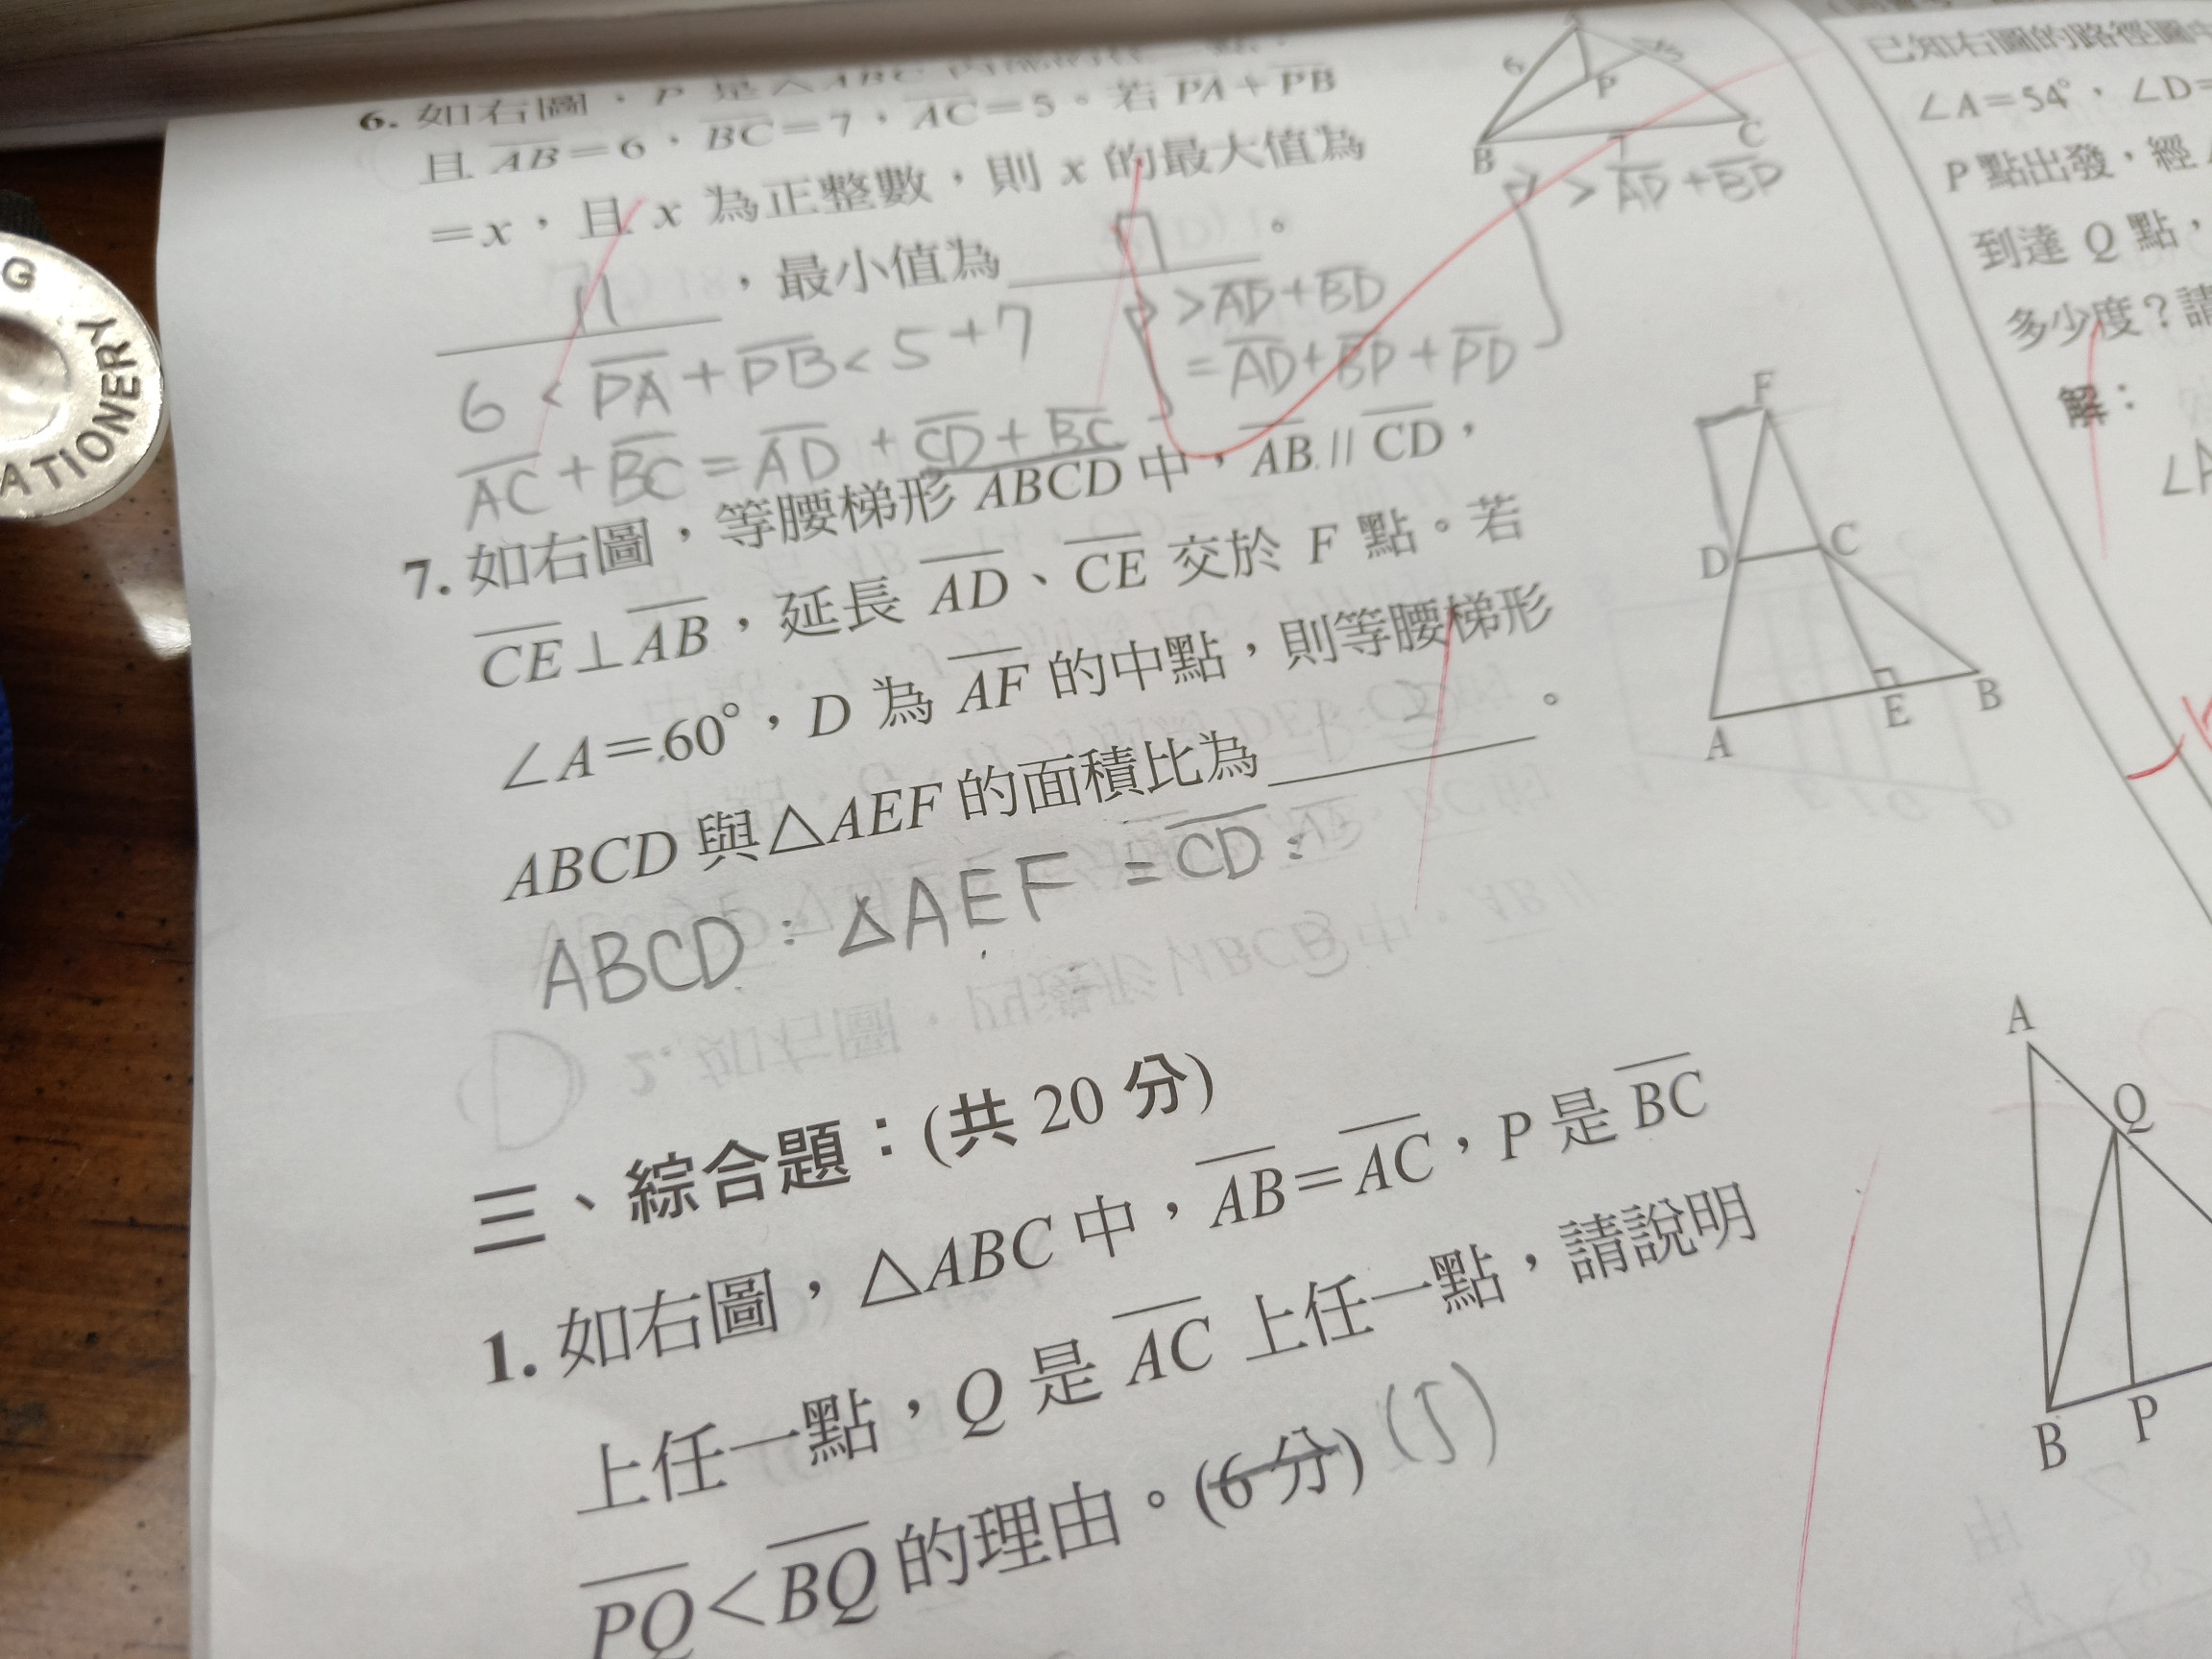 6. 如右圖，P 是△ABC
且 AB=6，BC=7，AC=5。若 PA+PB
=x，且 x 為正整數，則 x 的最大值為
11，最小值為 7。
6 < PA + PB < 5 + 7
AC + BC = AD + CD + BC
> AD + BD
= AD + BP + PD
> AD + BP
6
P
B
C
7. 如右圖，等腰梯形 ABCD 中，AB // CD，
CE⊥AB，延長 AD、CE 交於 F 點。若
∠A=60°，D 為 AF 的中點，則等腰梯形
ABCD 與△AEF 的面積比為
。
ABCD : △AEF = CD :
F
D
C
A
E
B
三、綜合題：(共 20 分)
1. 如右圖，△ABC 中，AB=AC，P 是 BC
上任一點，Q 是 AC 上任一點，請說明
PQ<BQ 的理由。(6 分) (5)
A
Q
B
P
已知右圖的路徑圖中
∠A=54°，∠D=
P 點出發，經
到達 Q 點，
多少度？請
解：
G
ATIONERY